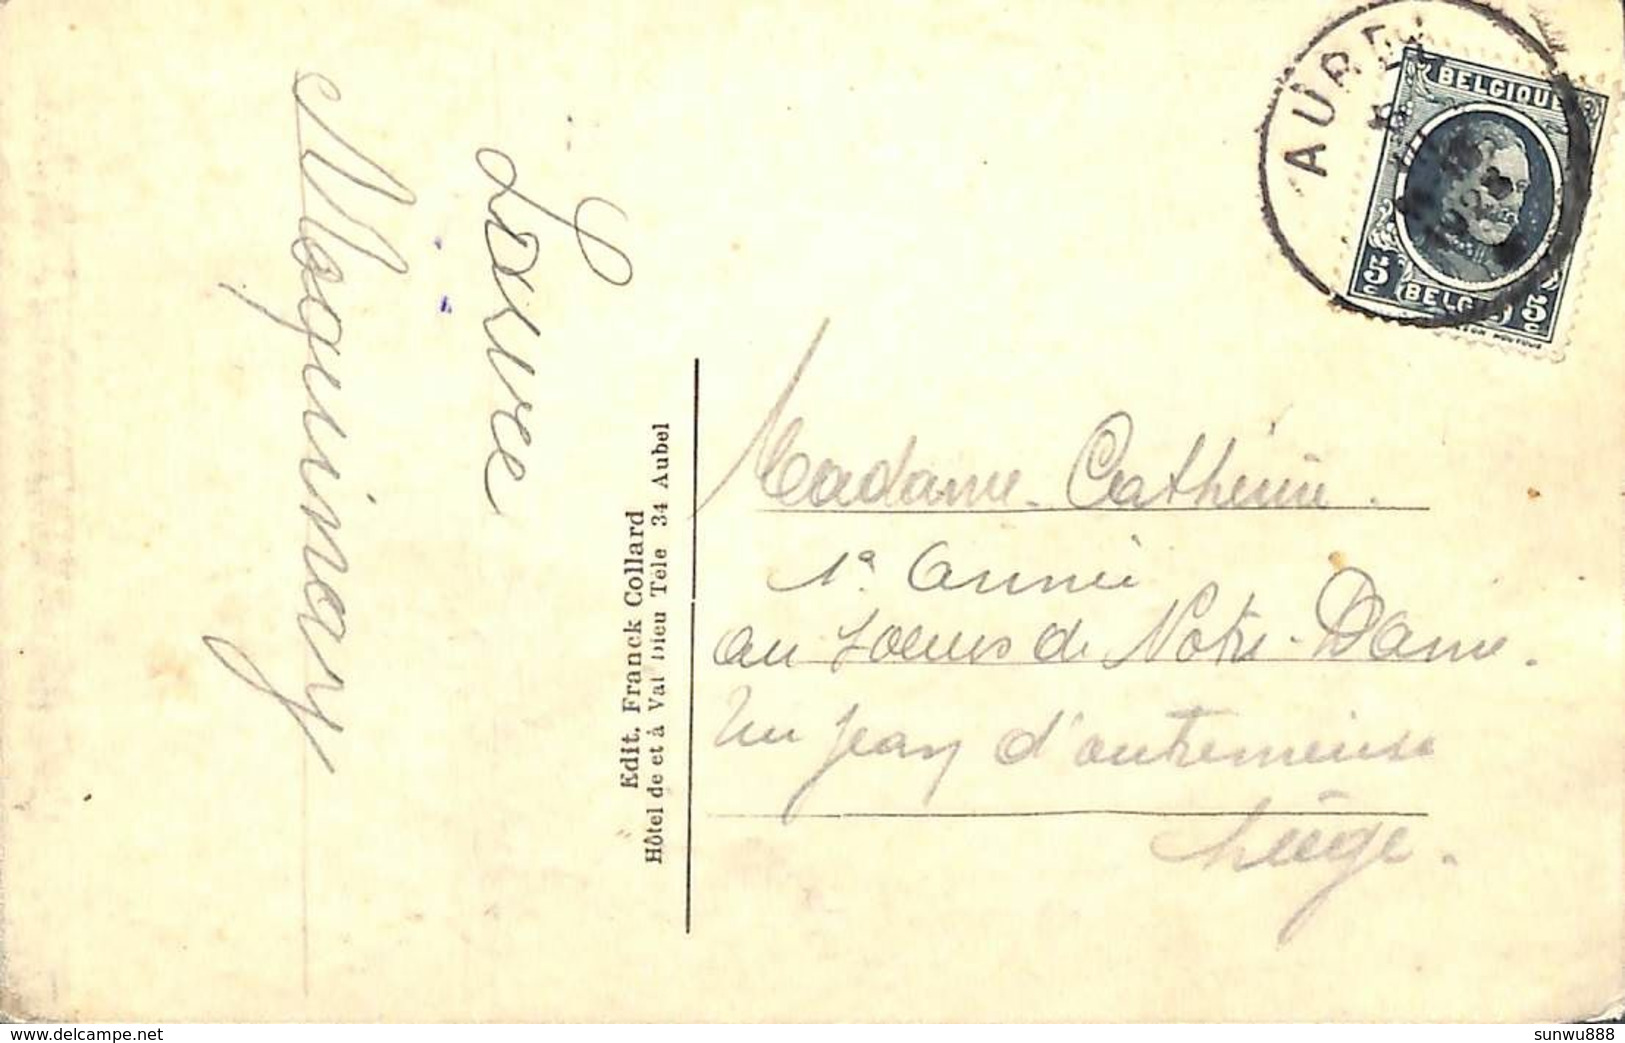 AUBEL
BELGIQUE
5c
5c
BELGIË
Louise
Maguinay
Edit. Franck Collard
Hôtel de et à Val Dieu Télé 34 Aubel
Madame Cathérine.
1e année
au Soeurs de Notre-Dame.
Rue Jean d'outremeuse
Liège.
www.delcampe.net
sunwu888